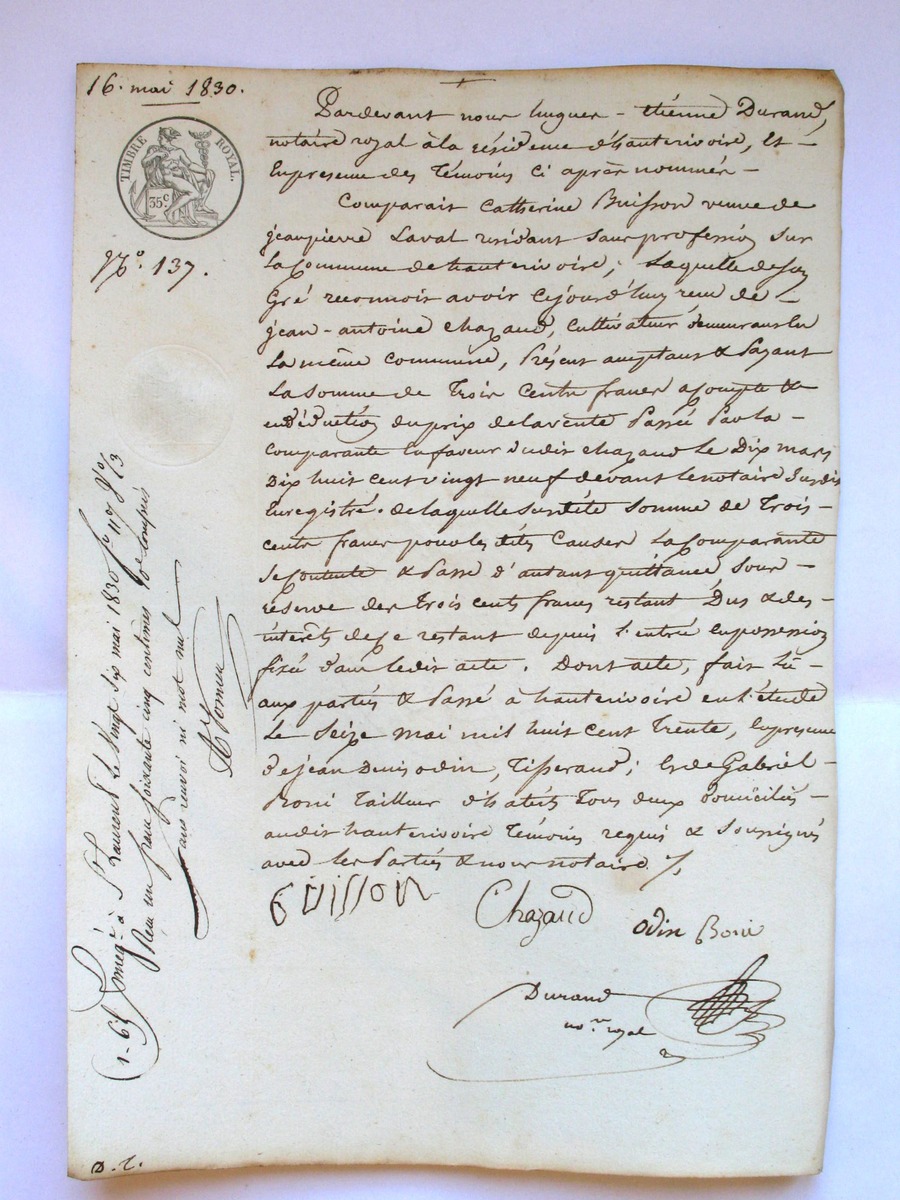 16. mai 1830.
TIMBRE ROYAL.
35 c.
N.º 137.
Pardevant nous hugues - étienne Durand,
notaire royal à la résidence d'hauterivoire, Et
En presence des Témoins ci après nommés
Comparait Catherine Buisson veuve de
jean pierre Laval residant sans profession sur
la Commune de hauterivoire; Laquelle de son
Gré reconnoit avoir cejourd'huy reçu de
jean-antoine chazaud, cultivateur demeurant en
La même commune, Présent acceptant & Payant
La somme de Trois Cents francs a compte &
en déduction du prix de la vente Passé Par la
comparante en faveur dudit chazaud le Dix mars
Dix huit cent vingt neuf devant le notaire susdit
Enregistré. de laquelle sus dité somme de Trois
cents francs pour les dites Causes La Comparante
Se Contente & Passe d'autant quittance sous
réserve des trois cents francs restant Dus & des
intérêts de ce restant depuis l'entrée en possession
fixé dans ledit acte. Dont acte, fait lu
aux partés & Passé à hauterivoire en l'étude
Le Seize mai mil huit cent Trente, En presence
de jean Denis odin, Tisserand; Et de Gabriel
Tailleur d'habits Tous deux Domiciliés
audit hauterivoire Témoins requis & Soussignés
avec les Partiés & nous notaire ./.
BUISSON
Chazaud
odin
Durand
no.re royal
Enreg.é à St Laurent le vingt six mai 1830 fo 117 Vo c/3
Reçu un franc soixante cinq centimes Xe compris
sans renvoi ni mot nul
1-65
D. L.